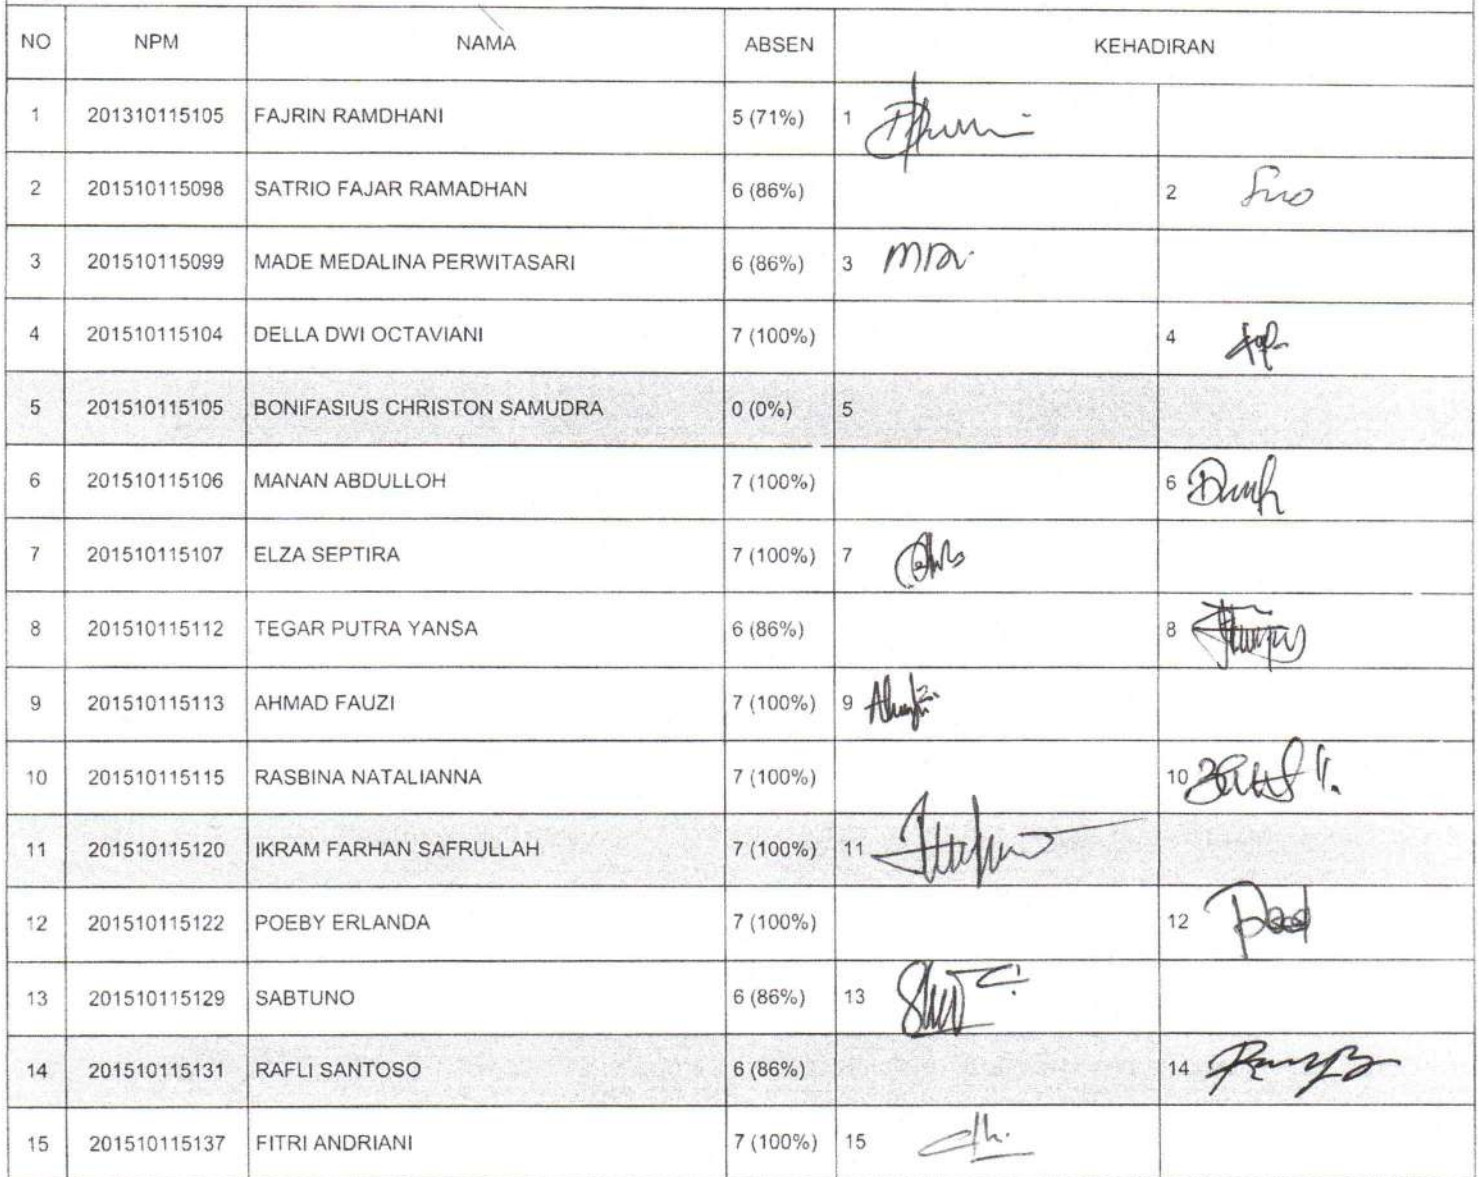 NO NPM NAMA ABSEN KEHADIRAN
1 201310115105 FAJRIN RAMDHANI 5 (71%) 1
2 201510115098 SATRIO FAJAR RAMADHAN 6 (86%) 2
3 201510115099 MADE MEDALINA PERWITASARI 6 (86%) 3
4 201510115104 DELLA DWI OCTAVIANI 7 (100%) 4
5 201510115105 BONIFASIUS CHRISTON SAMUDRA 0 (0%) 5
6 201510115106 MANAN ABDULLOH 7 (100%) 6
7 201510115107 ELZA SEPTIRA 7 (100%) 7
8 201510115112 TEGAR PUTRA YANSA 6 (86%) 8
9 201510115113 AHMAD FAUZI 7 (100%) 9
10 201510115115 RASBINA NATALIANNA 7 (100%) 10
11 201510115120 IKRAM FARHAN SAFRULLAH 7 (100%) 11
12 201510115122 POEBY ERLANDA 7 (100%) 12
13 201510115129 SABTUNO 6 (86%) 13
14 201510115131 RAFLI SANTOSO 6 (86%) 14
15 201510115137 FITRI ANDRIANI 7 (100%) 15